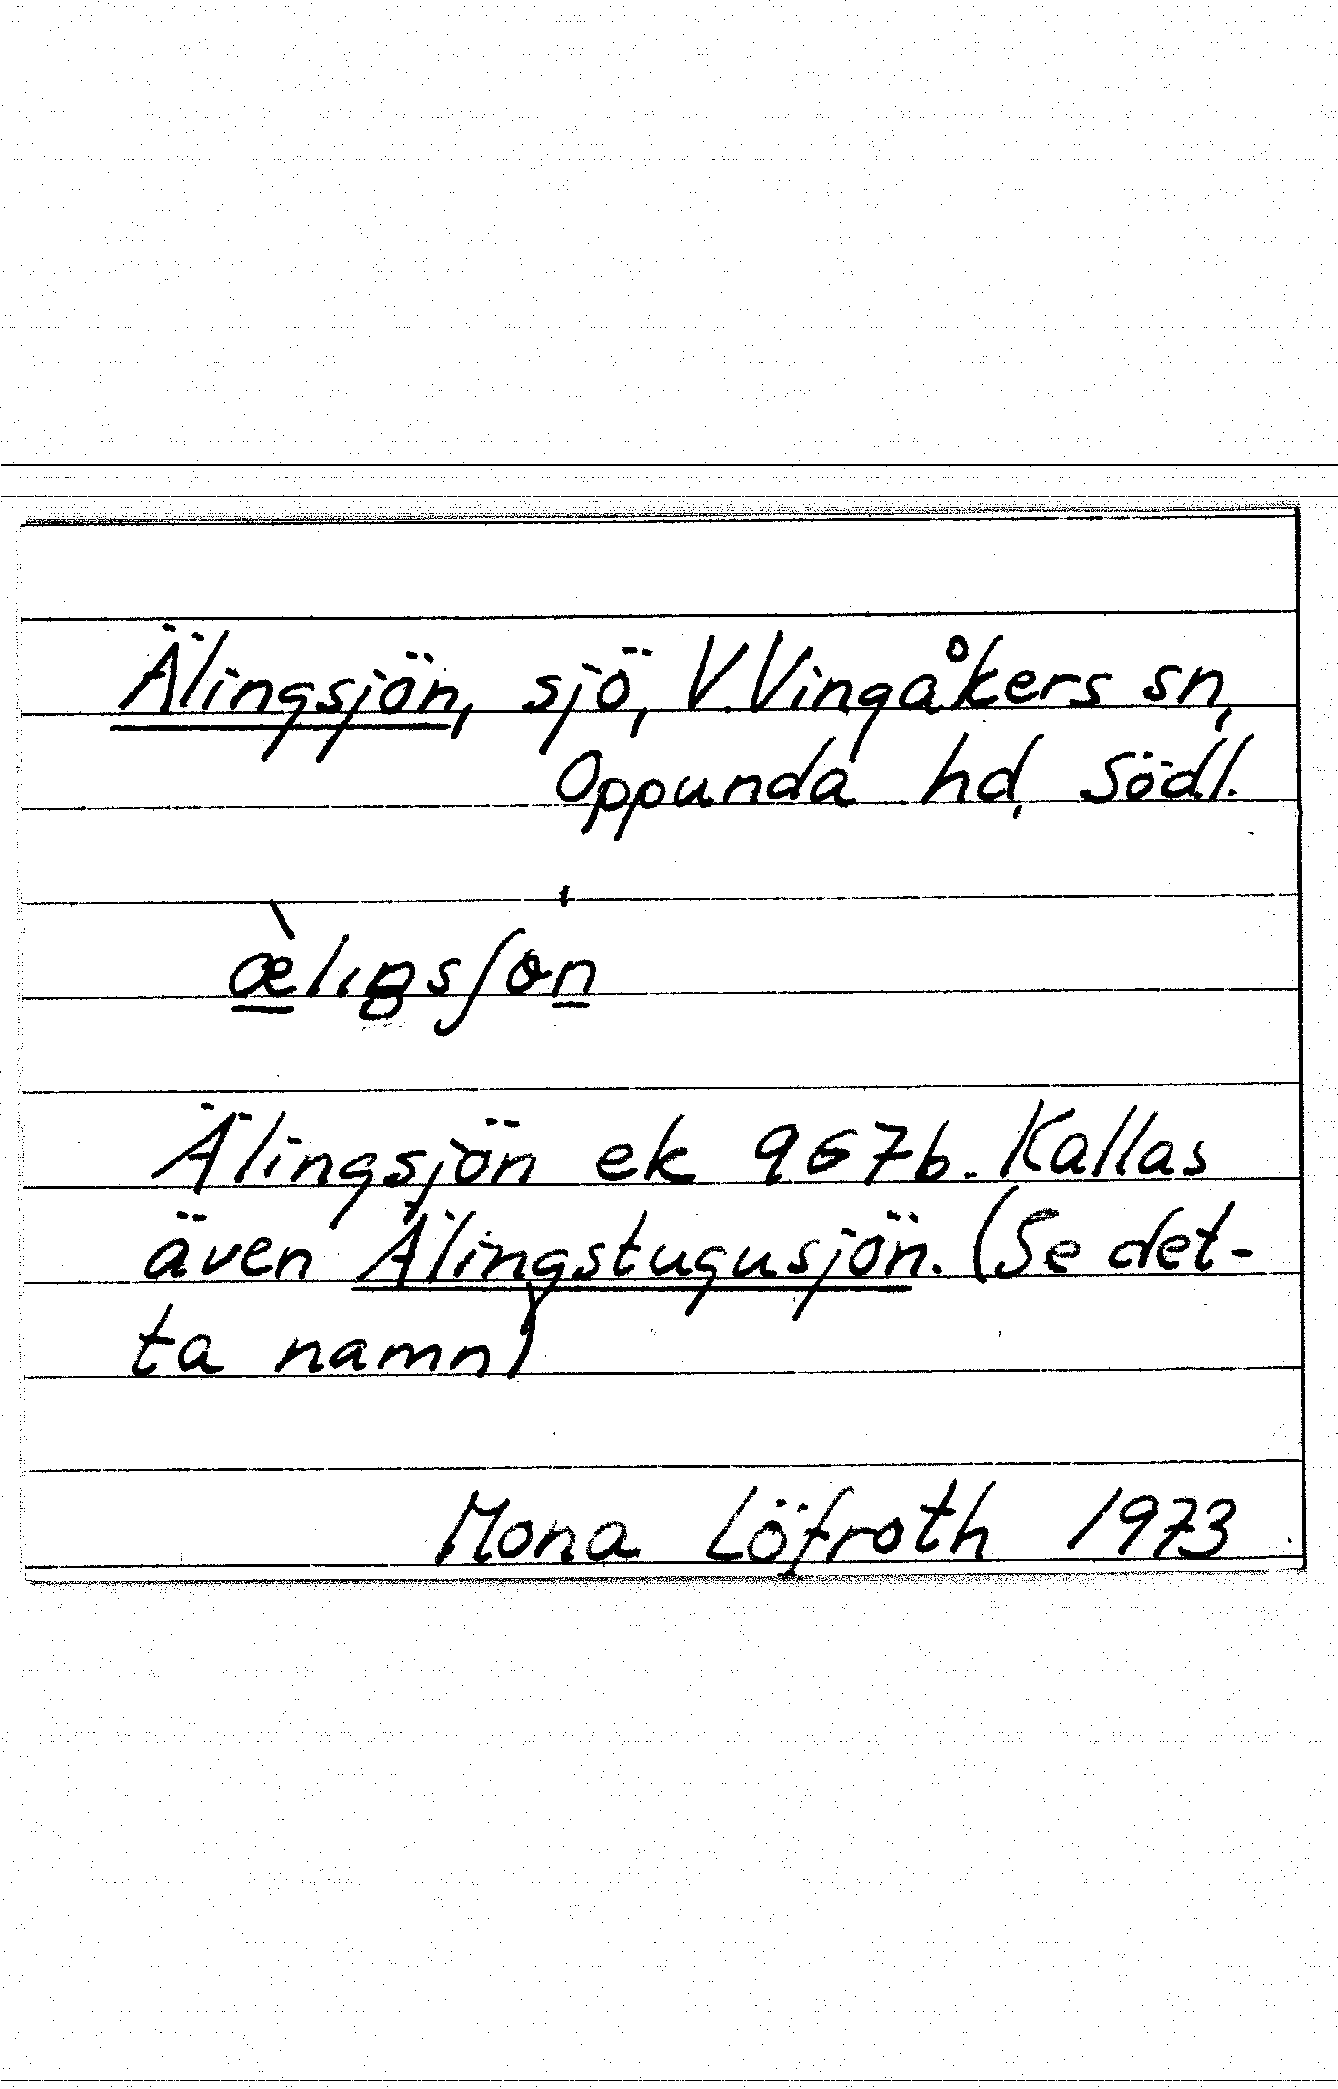 Älingsjön, sjö, V. Vingåkers sn,
Oppunda hd, Södl.
æ̀lıŋsʃøn
Älingsjön ek 9G7b. Kallas
även Älingstugusjön. (Se det-
ta namn)
Mona Löfroth 1973